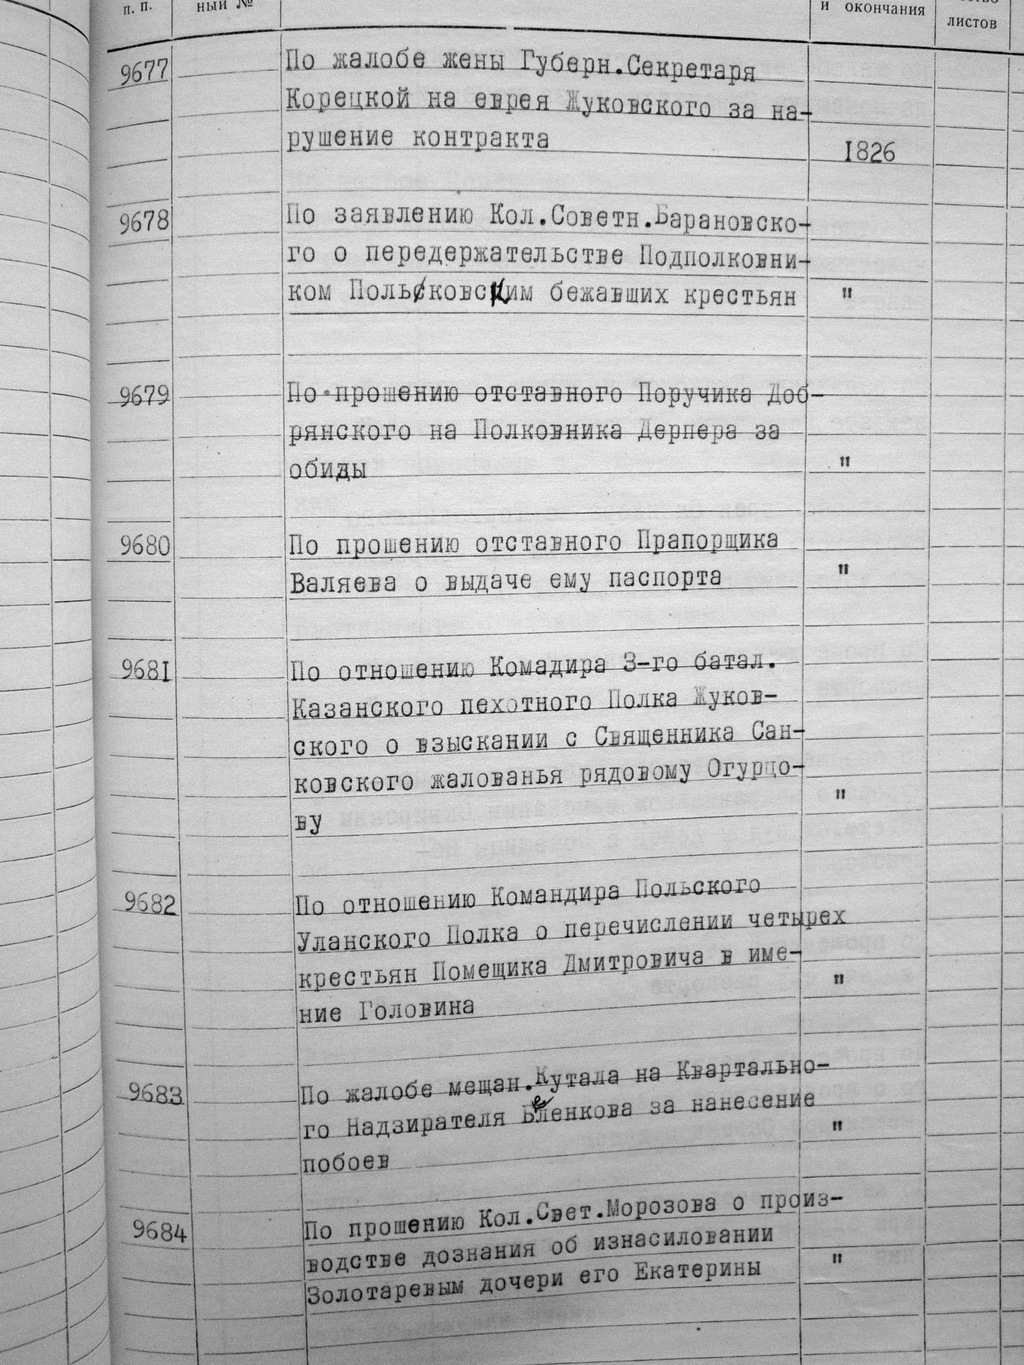 п. п.
ный №
и окончания
листов
9677
По жалобе жены Губерн.Секретаря
Корецкой на еврея Жуковского за на-
рушение контракта
1826
9678
По заявлению Кол.Советн.Барановско-
го о передержательстве Подполковни-
ком Польковским бежавших крестьян "
9679
По прошению отставного Поручика Доб-
рянского на Полковника Дерпера за
обиды "
9680
По прошению отставного Прапорщика
Валяева о выдаче ему паспорта "
9681
По отношению Комадира 3-го батал.
Казанского пехотного Полка Жуков-
ского о взыскании с Священника Сан-
ковского жалованья рядовому Огурцо-
ву "
9682
По отношению Командира Польского
Уланского Полка о перечислении четырех
крестьян Помещика Дмитровича в име-
ние Головина "
9683
По жалобе мещан.Кутала на Квартально-
го Надзирателя Беленкова за нанесение
побоев "
9684
По прошению Кол.Свет.Морозова о произ-
водстве дознания об изнасиловании
Золотаревым дочери его Екатерины "